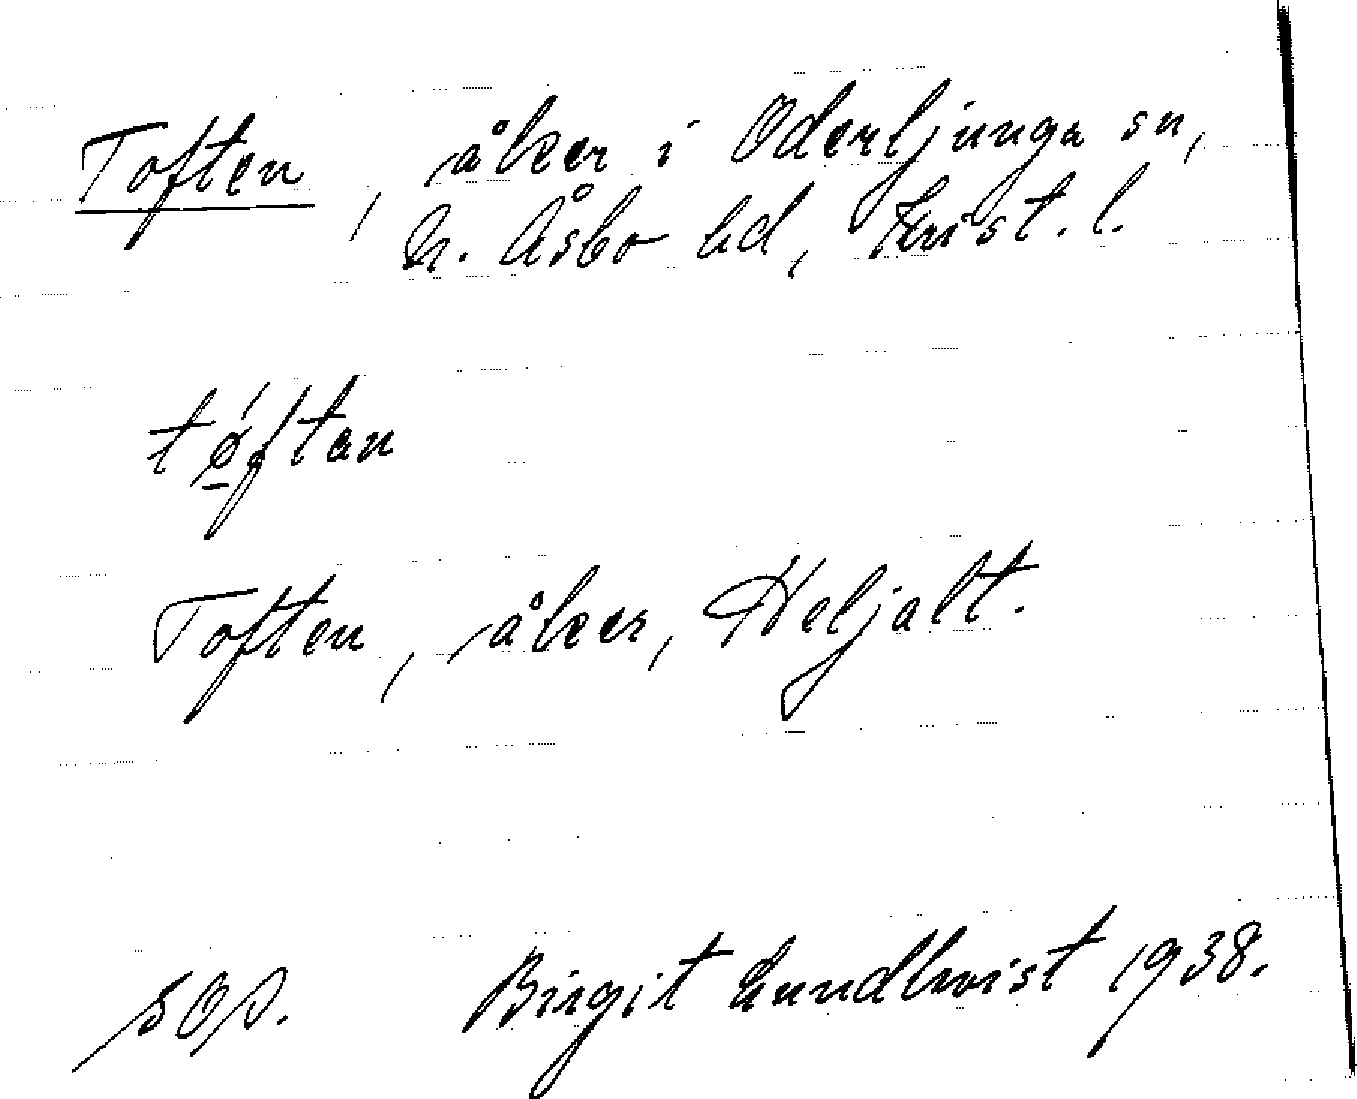 Toften, åker i Oderljunga sn,
N. Åsbo hd, Krist. l.
tǿ̠ftan
Toften, åker, Heljalt.
sOp. Birgit Lundkvist 1938.